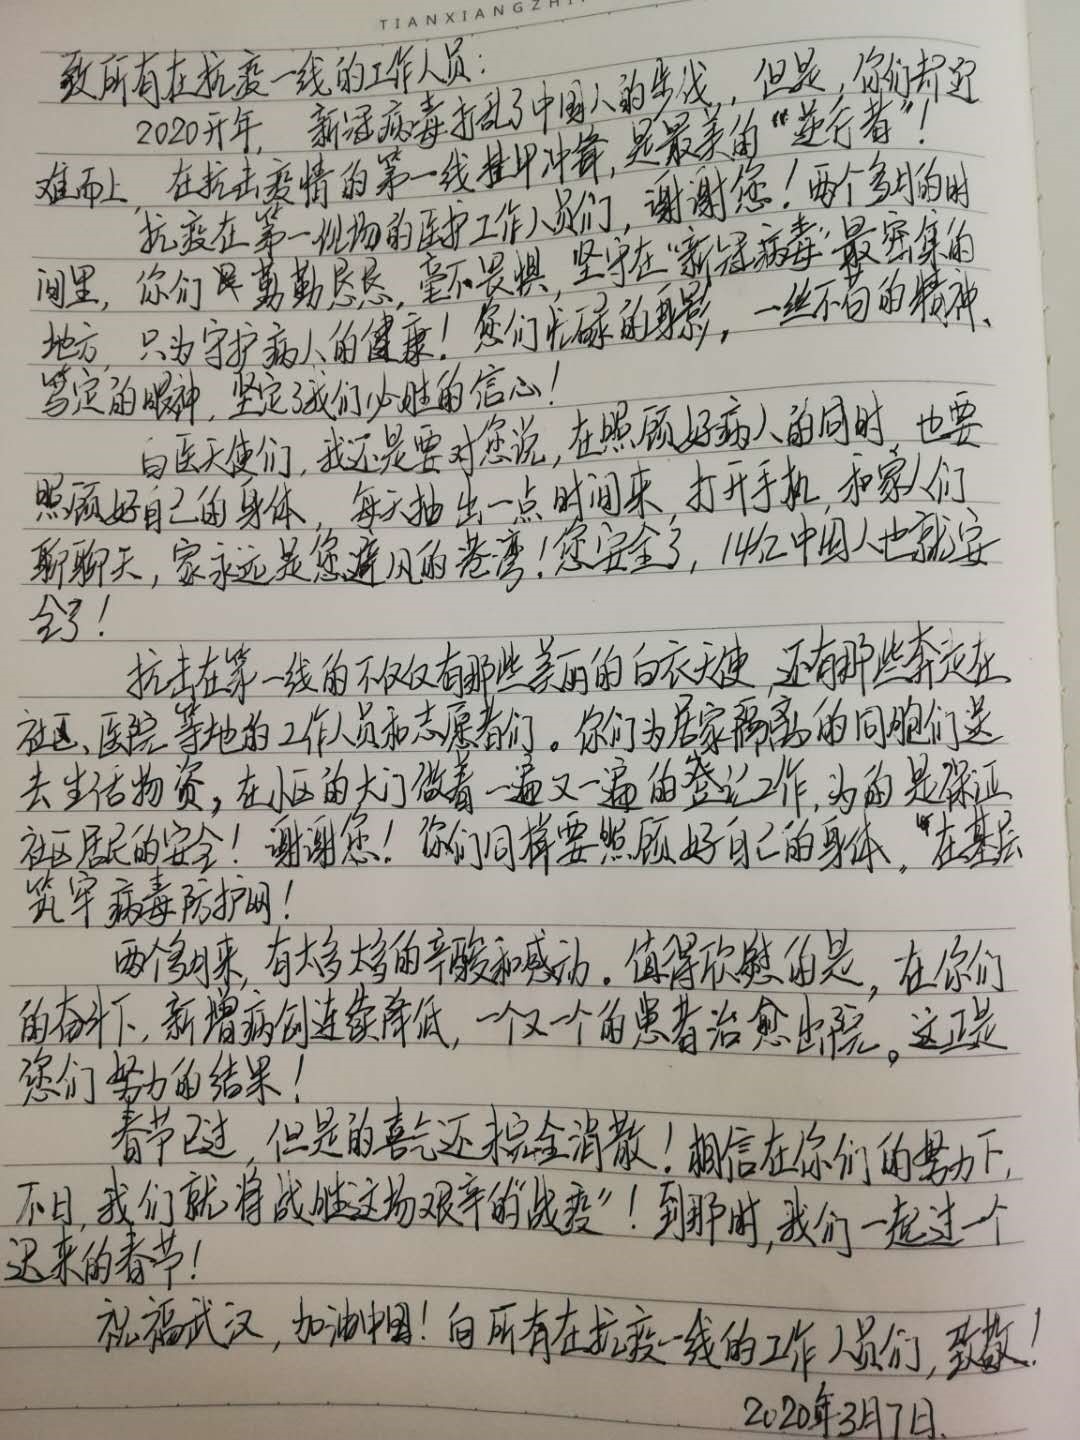 TIANXIANGZHI
致所有在抗疫一线的工作人员:
2020开年, 新冠病毒打乱了中国人的步伐, 但是, 你们却迎
难而上, 在抗击疫情的第一线挂甲冲锋, 是最美的“逆行者”!
抗疫在第一现场的医护工作人员们, 谢谢您! 两个多月的时
间里, 你们 勤勤恳恳, 毫不畏惧, 坚守在“新冠病毒”最密集的
地方, 只为守护病人的健康! 您们忙碌的身影, 一丝不苟的精神、
笃定的眼神, 坚定了我们必胜的信心!
白医天使们, 我还是要对您说, 在照顾好病人的同时, 也要
照顾好自己的身体, 每天抽出一点时间来, 打开手机, 和家人们
聊聊天, 家永远是您避风的港湾! 您安全了, 14亿中国人也就安
全了!
抗击在第一线的不仅仅有那些美丽的白衣天使, 还有那些奔走在
社区、医院等地的工作人员和志愿者们。你们为居家隔离的同胞们送
去生活物资, 在小区的大门做着一遍又一遍的登记工作, 为的是保证
社区居民的安全! 谢谢您! 你们同样要照顾好自己的身体, “在基层
筑牢病毒防护网!
两个多月来, 有太多太多的辛酸和感动。值得欣慰的是, 在你们
的奋斗下, 新增病例连续降低, 一个又一个的患者治愈出院。这正是
您们努力的结果!
春节已过, 但是的喜气还未完全消散! 相信在你们的努力下,
不日, 我们就将战胜这场艰辛的“战疫”! 到那时, 我们一起过一个
迟来的春节!
祝福武汉, 加油中国! 向所有在抗疫一线的工作人员们, 致敬!
2020年3月7日.